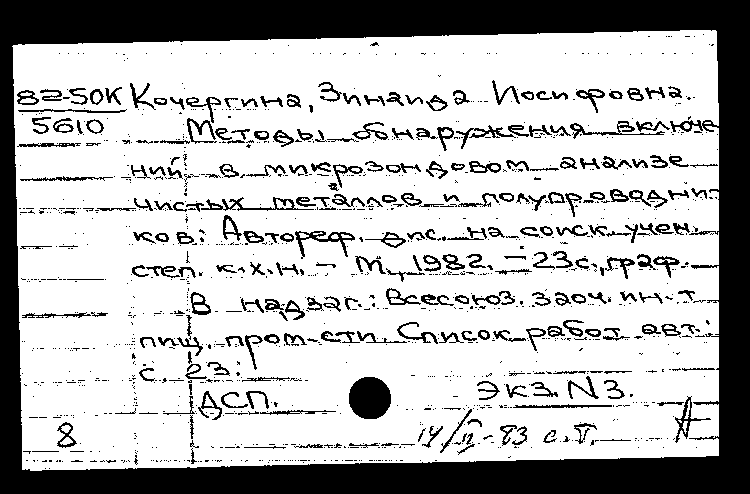 82-50К Кочергина, Зинаида Иосифовна.
5610 Методы обнаружения включе
ний в микрозондовом анализе
чистых металлов и полупроводни-
ков: Автореф. дис. на соиск. учен.
степ. к.х.н. - М., 1982. - 23с., граф.
В надзаг.: Всесоюз. заоч. ин-т
пищ. пром-сти. Список работ авт.:
с. 23.
ДСП. Экз. N3.
8 14/II-83 с.т. А